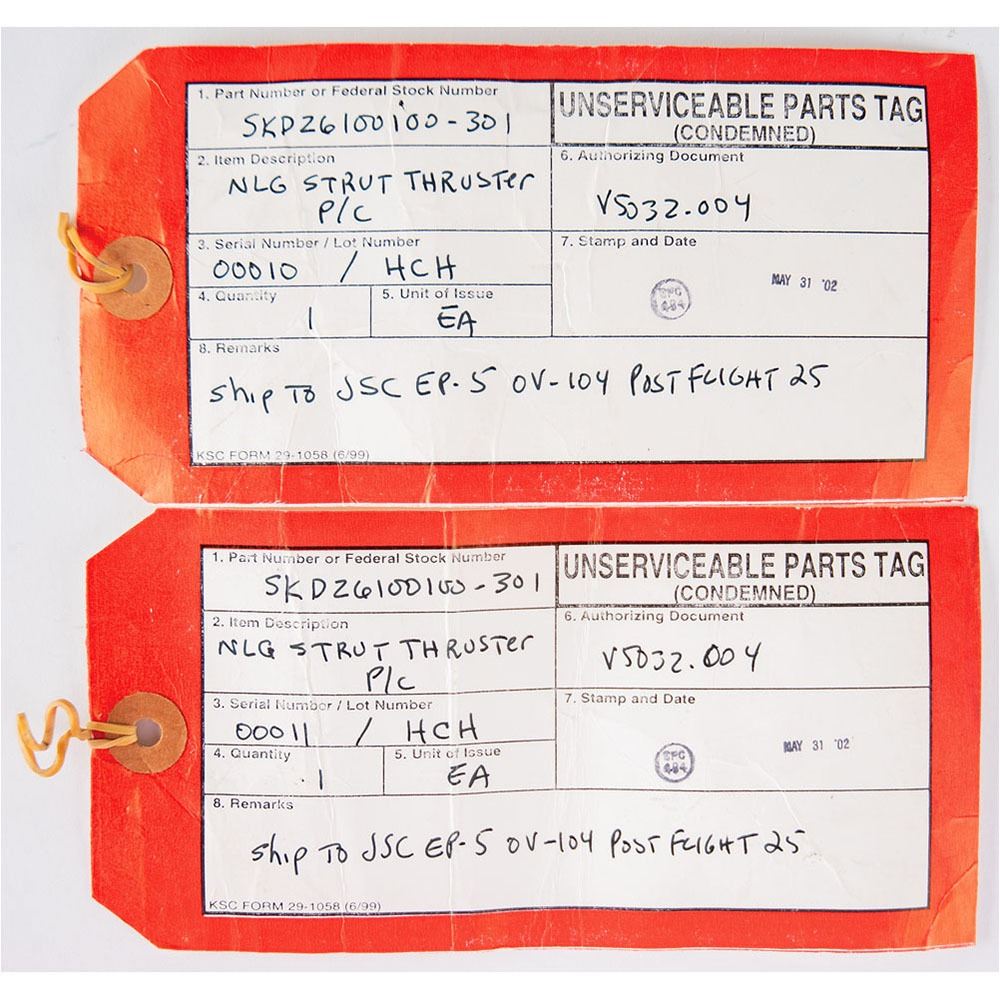 1. Part Number or Federal Stock Number
SKD26100100-301
UNSERVICEABLE PARTS TAG
(CONDEMNED)
2. Item Description
NLG STRUT THRUSTer
P/C
6. Authorizing Document
V5032.004
3. Serial Number / Lot Number
00010 / HCH
7. Stamp and Date
MAY 31 '02
4. Quantity
1
5. Unit of Issue
EA
8. Remarks
Ship To JSC EP-5 OV-104 POST FLIGHT 25
KSC FORM 29-1058 (6/99)
1. Part Number or Federal Stock Number
SKD26100100-301
UNSERVICEABLE PARTS TAG
(CONDEMNED)
2. Item Description
NLG STRUT THRUSTer
P/C
6. Authorizing Document
V5032.004
3. Serial Number / Lot Number
00011 / HCH
7. Stamp and Date
MAY 31 '02
4. Quantity
1
5. Unit of Issue
EA
8. Remarks
Ship To JSC EP-5 OV-104 POST FLIGHT 25
KSC FORM 29-1058 (6/99)